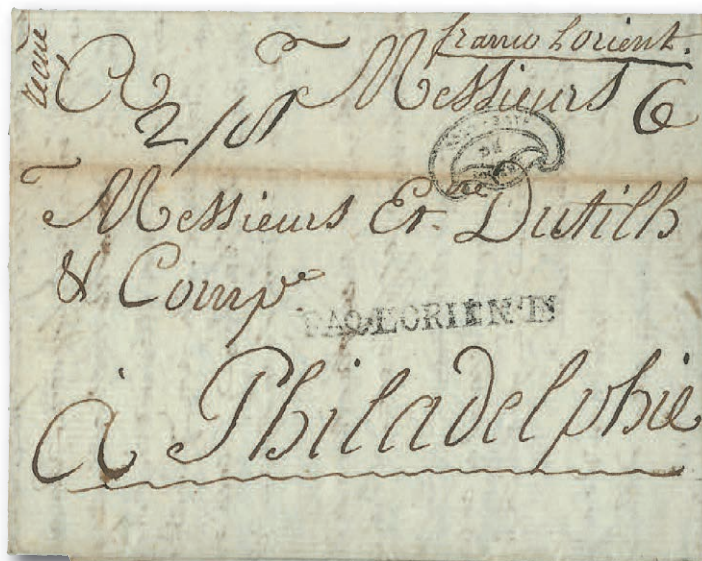 franco Lorient.
A Messieurs 6
2/8
Messieurs Et.ne Dutilh
& Comp.e
PAQ. LORIENT
à Philadelphie